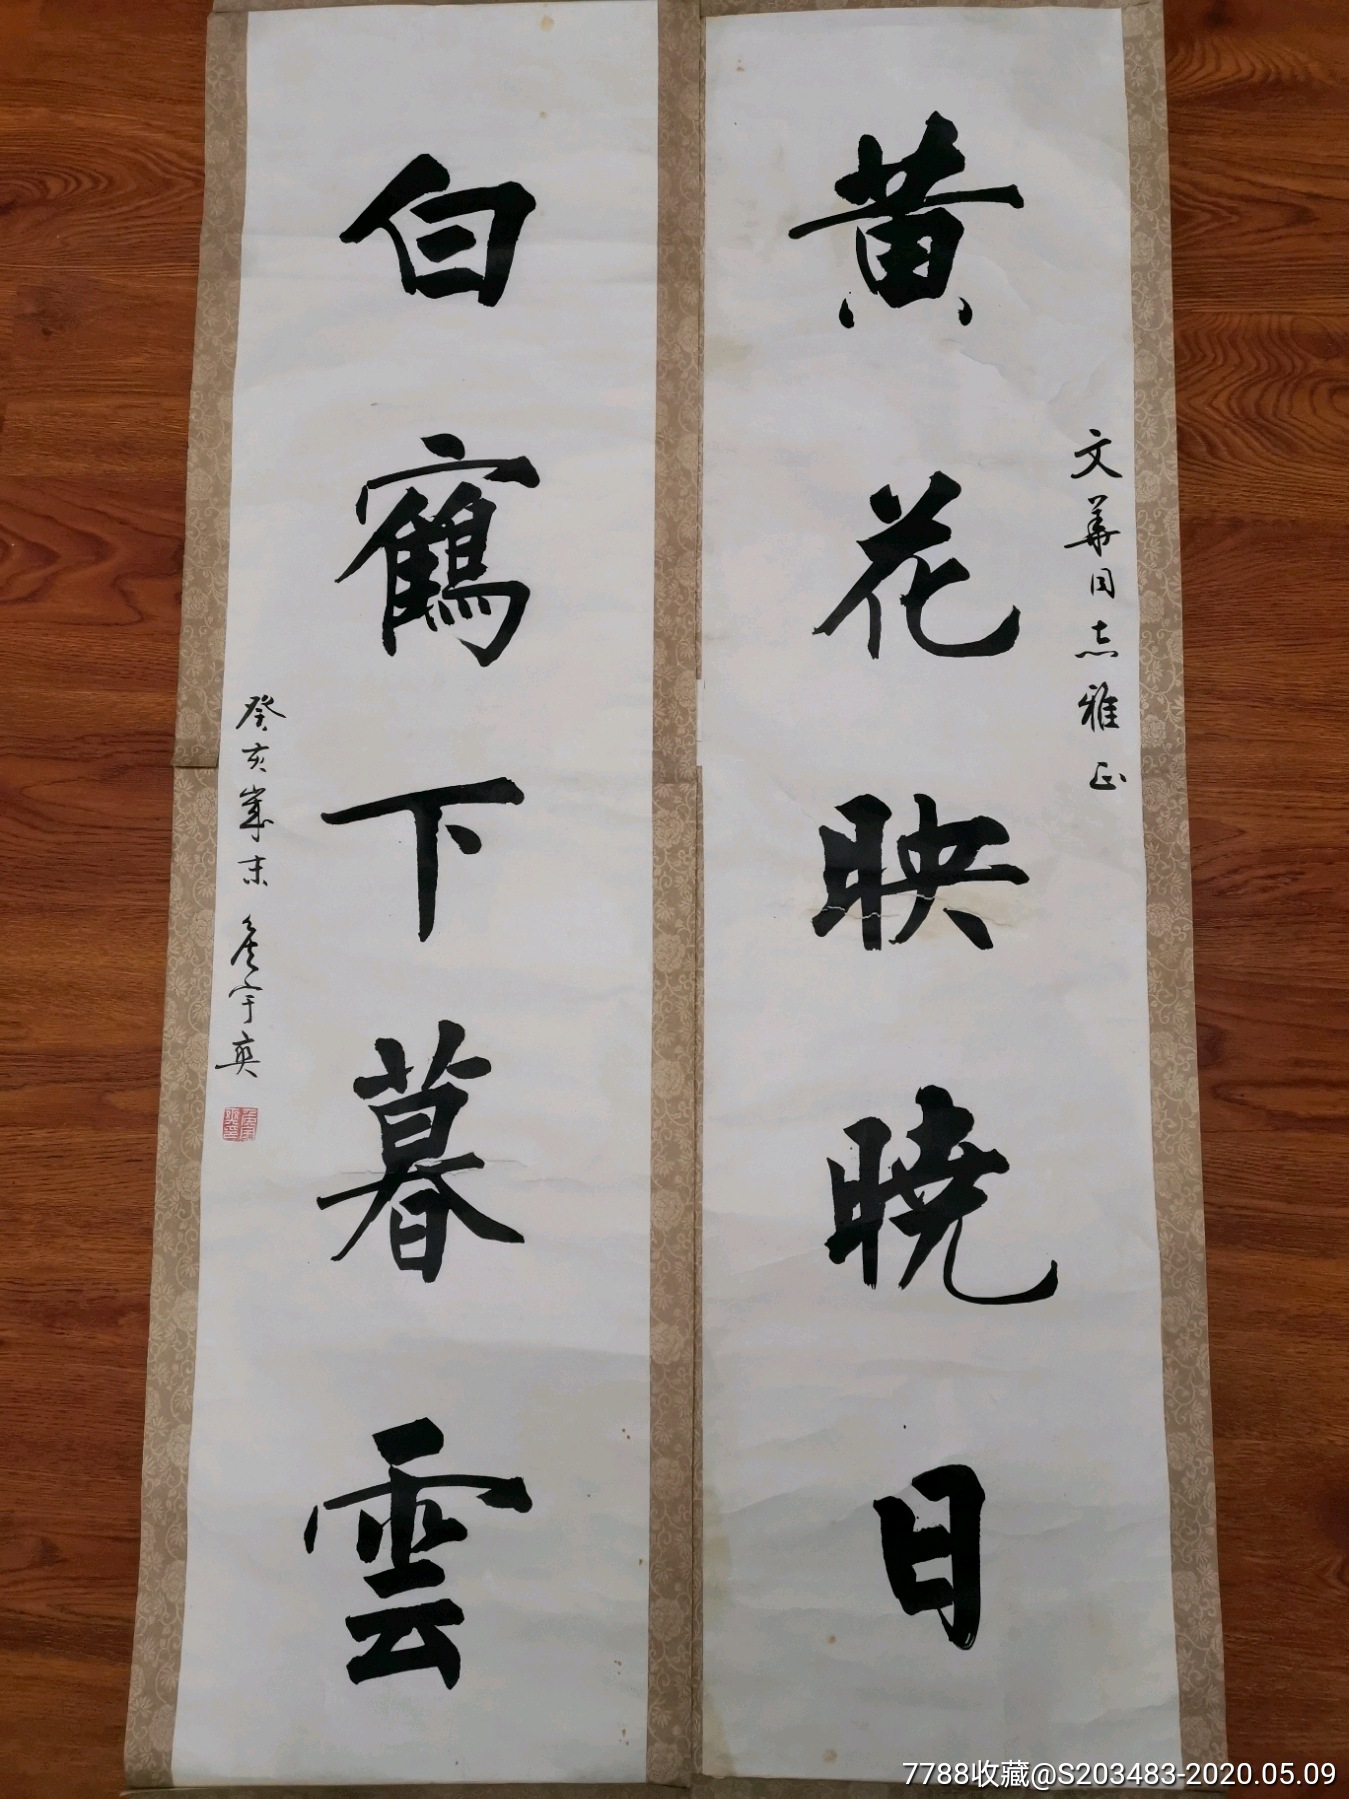 黄花映曉日
文華同志雅正
白鶴下暮雲
癸亥歲末
宇奭
7788收藏@S203483-2020.05.09